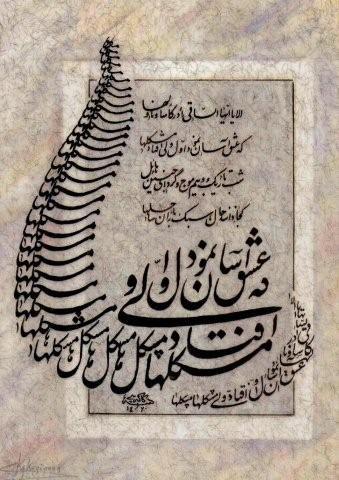 الا یا ایها الساقی ادر کاسا و ناولها
که عشق آسان نمود اول ولی افتاد مشکلها
شب تاریک و بیم موج و گردابی چنین هایل
کجا دانند حال ما سبکباران ساحلها
که عشق آسان نمود اول ولی
افتاد
مشکلها مشکلها مشکلها مشکلها مشکلها
که عشق آسان نمود اول افتاد ولی مشکلها مشکلها